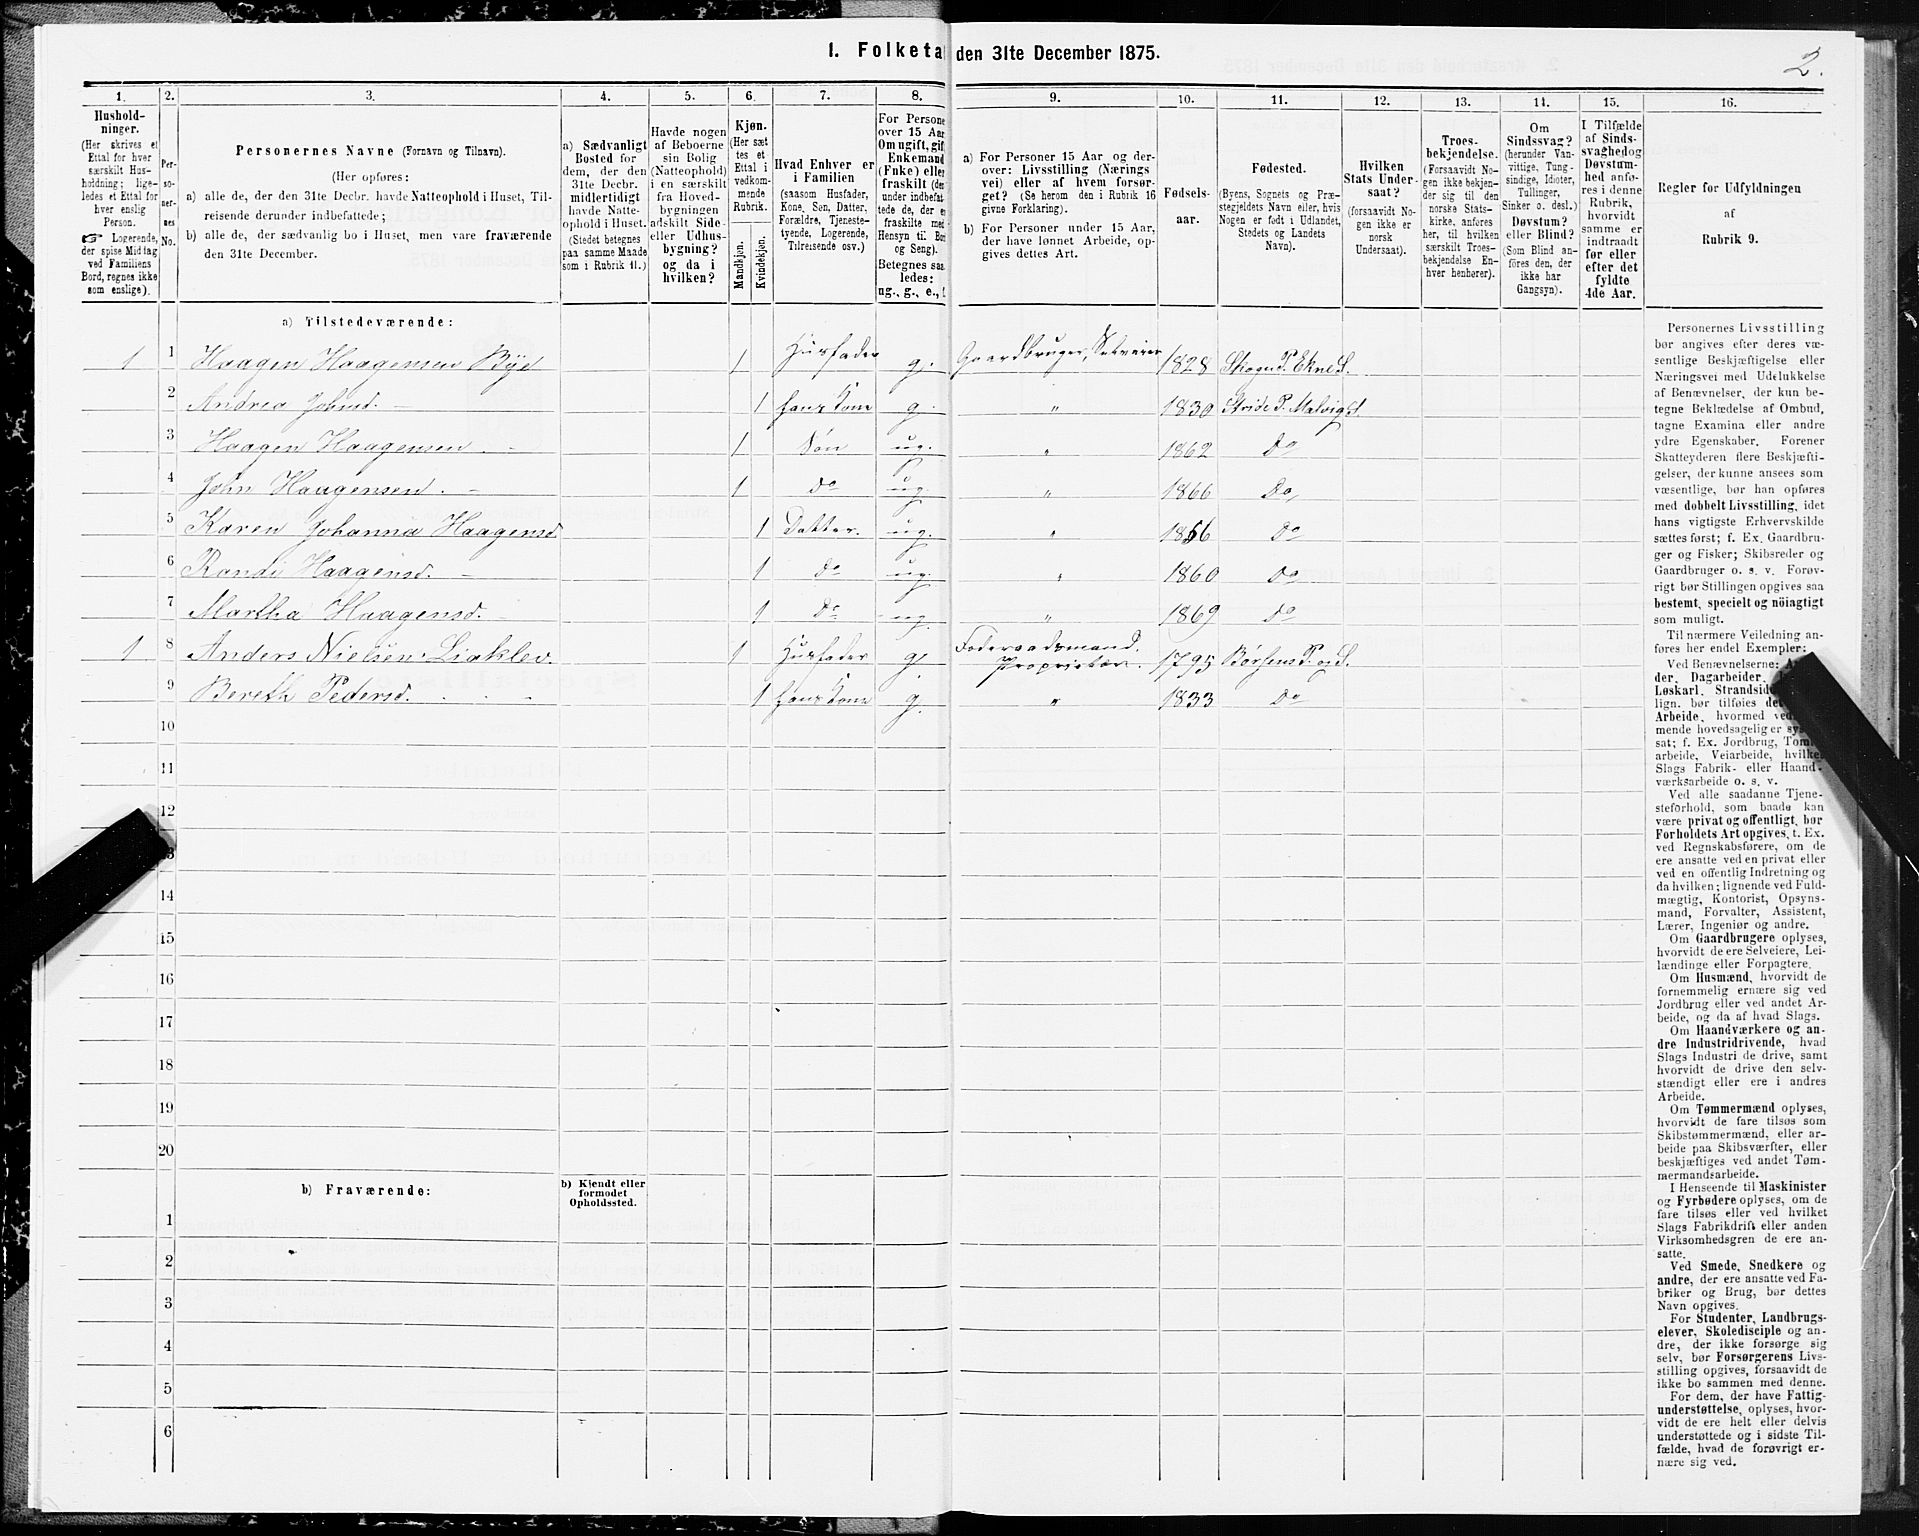 1. Folketa den 31te December 1875.
2.
1. 2. 3. 4. 5. 6. 7. 8. 9. 10. 11. 12. 13. 14. 15. 16.
Hushold-
ninger.
(Her skrives et
Ettal for hver
særskilt Hus-
holdning; lige-
ledes et Ettal for
hver enslig
Person.
Logerende,
der spise Middag
ved Familiens
Bord, regnes ikke
som enslige).
Per-
so-
ner-
nes
No.
Personernes Navne (Fornavn og Tilnavn).
(Her opføres:
a) alle de, der den 31te Decbr. havde Natteophold i Huset, Til-
reisende derunder indbefattede;
b) alle de, der sædvanlig bo i Huset, men vare fraværende
den 31te December.
a) Sædvanligt
Bosted for
dem, der den
31te Decbr.
midlertidigt
havde Natte-
ophold i Huset.
(Stedet betegnes
paa samme Maade
som i Rubrik 11.)
Havde nogen
af Beboerne
sin Bolig
(Natteophold)
i en særskilt
fra Hoved-
bygningen
adskilt Side-
eller Udhus-
bygning?
og da i
hvilken?
Kjøn.
(Her sæt
tes et
Ettal i
vedkom-
mende
Rubrik.
Mandkjøn.
Kvindekjøn.
Hvad Enhver er
i Familien
(saasom Husfader,
Kone, Søn, Datter,
Forældre, Tjeneste-
tyende, Logerende,
Tilreisende osv.)
For Persone
over 15 Aar
Om ugift, gift
Enkemand
(Enke) eller
fraskilt (der
under indbefat
tede de, der er
fraskilte med
Hensyn til Bo
og Seng).
Betegnes saa
ledes:
ug., g., e.,
a) For Personer 15 Aar og der-
over: Livsstilling (Nærings
vei) eller af hvem forsør-
get? (Se herom den i Rubrik 16
givne Forklaring).
b) For Personer under 15 Aar,
der have lønnet Arbeide, op-
gives dettes Art.
Fødsels-
aar.
Fødested.
(Byens, Sognets og Præ-
stegjeldets Navn eller, hvis
Nogen er født i Udlandet,
Stedets og Landets
Navn).
Hvilken
Stats Under-
saat?
(forsaavidt No-
gen ikke er
norsk
Undersaat).
Troes-
bekjendelse.
(Forsaavidt No-
gen ikke bekjen-
der sig til den
norske Stats-
kirke, anføres
her, til hvilken
særskilt Troes-
bekjendelse En-
hver henhører).
Om
Sindssvag?
(herunder Van-
vittige, Tung-
sindige, Idioter,
Tullinger,
Sinker o. desl.)
Døvstum?
eller Blind?
(Som Blind an-
føres den, der
ikke har
Gangsyn).
I Tilfælde
af Sinds-
svaghed og
Døvstum-
hed anfø-
res i denne
Rubrik,
hvorvidt
samme er
indtraadt
før eller
efter det
fyldte
4de Aar.
Regler for Udfyldningen
af
Rubrik 9.
a) Tilstedeværende:
1 1 Haagen Haagensen Bye 1 Husfader g. Gaardbruger, Selveier 1828 Skogn P. Ekne S.
2 Andrea Johnsd. 1 hans Kone g. " 1830 Strinde P. Malvig S.
3 Haagen Haagensen 1 Søn ug. " 1862 Do
4 John Haagensen 1 do ug. " 1866 Do
5 Karen Johanna Haagensd. 1 Datter. ug. " 1856 Do
6 Randi Haagensd. 1 do ug. " 1860 Do
7 Martha Haagensd. 1 Do ug. " 1869 Do
1 8 Anders Nielsen Liaklev 1 Husfader g. Foderaadsmand. Proprietær. 1795 Børsens P. og S.
9 Bereth Pedersd. 1 hans Kone g. " 1833 Do
10
11
12
13
14
15
16
17
18
19
20
b) Fraværende:
b) Kjendt eller
formodet
Opholdssted.
1
2
3
4
5
6
Personernes Livsstilling
bør angives efter deres væ-
sentlige Beskjæftigelse eller
Næringsvei med Udelukkelse
af Benævnelser, der kun be-
tegne Beklædelse af Ombud,
tagne Examina eller andre
ydre Egenskaber. Forener
Skatteyderen flere Beskjæfti-
gelser, der kunne ansees som
væsentlige, bør han opføres
med dobbelt Livsstilling, idet
hans vigtigste Erhvervskilde
sættes først; f. Ex. Gaardbru-
ger og Fisker; Skibsreder og
Gaardbruger o. s. v. Forøv-
rigt bør Stillingen opgives saa
bestemt, specielt og nöiagtigt
som muligt.
Til nærmere Veiledning an-
føres her endel Exempler:
Ved Benævnelserne:
der, Dagarbeider,
Løskarl, Strandsid
lign. bør tilføies de
Arbeide, hvormed ved
mende hovedsagelig er sys
sat; f. Ex. Jordbrug, Tom
arbeide, Veiarbeide, hvilket
Slags Fabrik- eller Haand-
værksarbeide o. s. v.
Ved alle saadanne Tjene-
steforhold, som baade kan
være privat og offentligt, bør
Forholdets Art opgives, t. Ex.
ved Regnskabsførere, om de
ere ansatte ved en privat eller
ved en offentlig Indretning og
da hvilken; lignende ved Fuld-
mægtig, Kontorist, Opsyns-
mand, Forvalter, Assistent,
Lærer, Ingeniør og andre.
Om Gaardbrugere oplyses,
hvorvidt de ere Selveiere, Lei-
lændinge eller Forpagtere.
Om Husmænd, hvorvidt de
fornemmelig ernære sig ved
Jordbrug eller ved andet Ar-
beide, og da af hvad Slags.
Om Haandværkere og an-
dre Industridrivende, hvad
Slags Industri de drive, samt
hvorvidt de drive den selv-
stændigt eller ere i andres
Arbeide.
Om Tømmermænd oplyses,
hvorvidt de fare tilsøs som
Skibstømmermænd, eller ar-
beide paa Skibsværfter, eller
beskjæftiges ved andet Tøm-
mermandsarbeide.
I Henseende til Maskinister
og Fyrbødere oplyses, om de
fare tilsøs eller ved hvilket
Slags Fabrikdrift eller anden
Virksomhedsgren de ere an-
satte.
Ved Smede, Snedkere og
andre, der ere ansatte ved Fa-
briker og Brug, bør dettes
Navn opgives.
For Studenter, Landbrugs-
elever, Skoledisciple og an-
dre, der ikke forsørge sig
selv, bør Forsørgerens Livs-
stilling opgives, forsaavidt de
ikke bo sammen med denne.
For dem, der have Fattig-
understøttelse, oplyses, hvor-
vidt de ere helt eller delvis
understøttede og i sidste Til-
fælde, hvad de forøvrigt er-
nære sig ved.